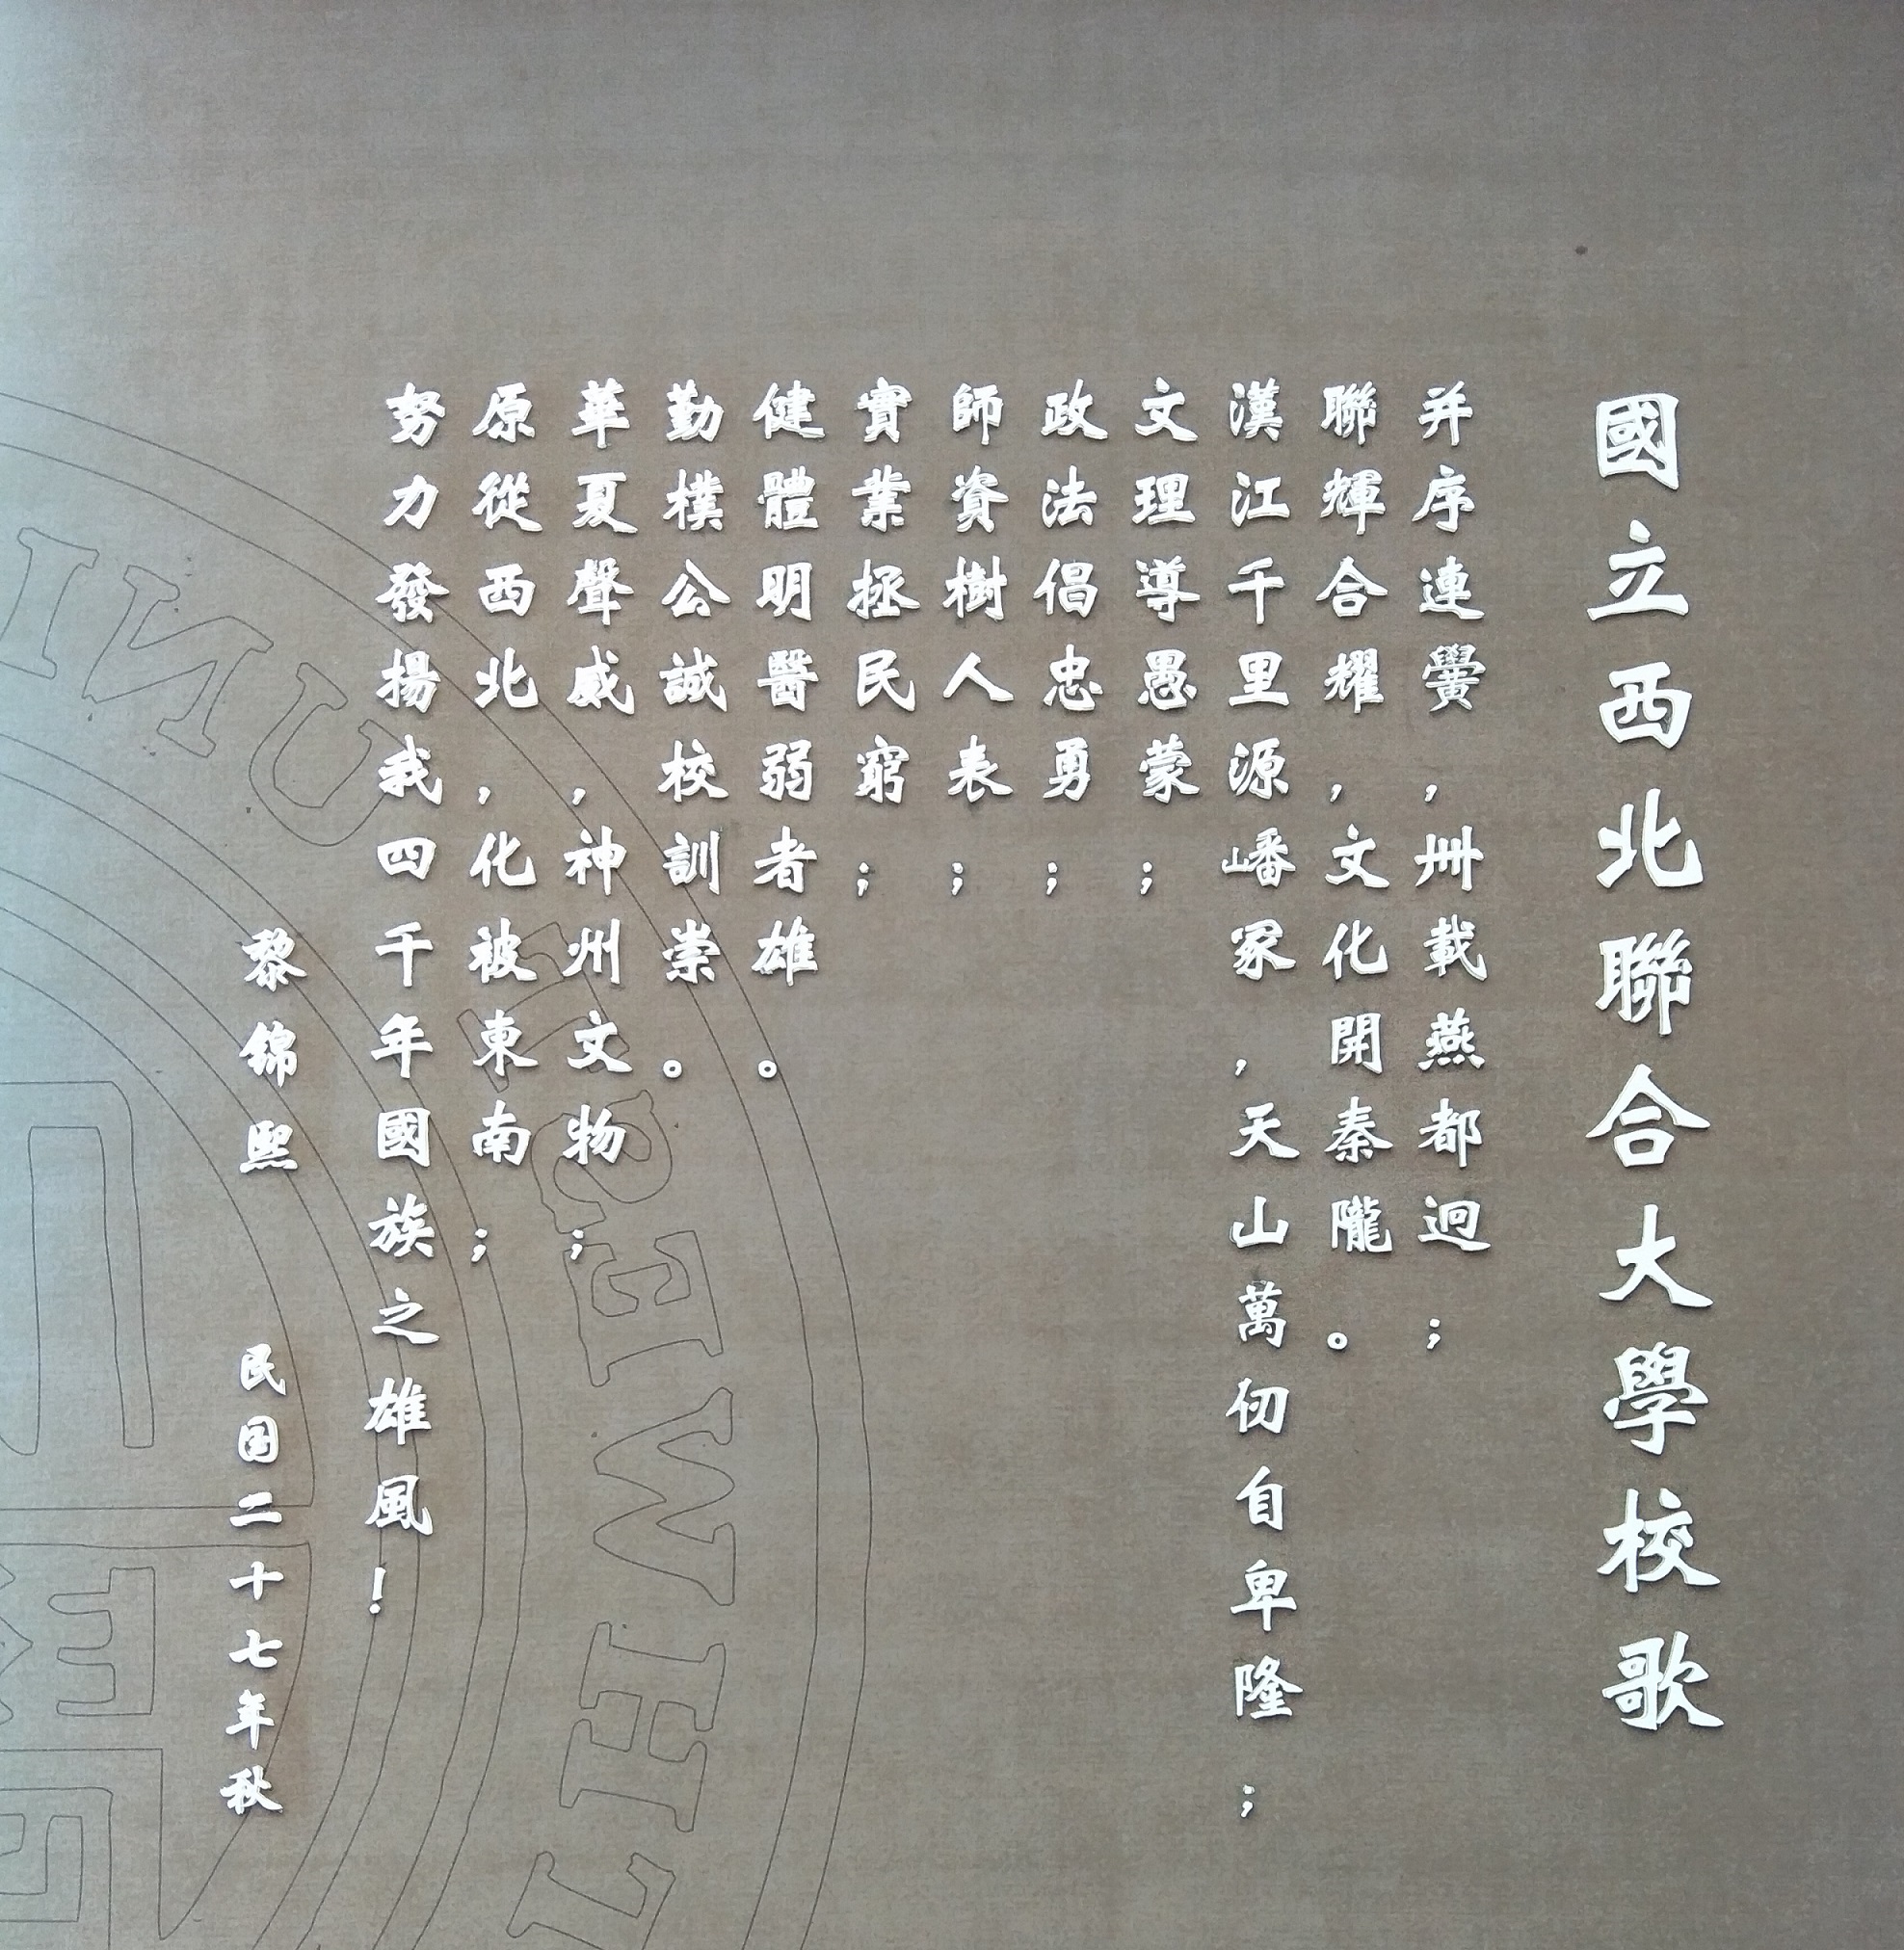 國立西北聯合大學校歌
并序連黌，卅載燕都迥；
聯輝合耀，文化開秦隴。
漢江千里源嶓冢，天山萬仞自卑隆；
文理導愚蒙；
政法倡忠勇；
師資樹人表；
實業拯民窮；
健體明醫弱者雄。
勤樸公誠校訓崇。
華夏聲威，神州文物；
原從西北，化被東南；
努力發揚我四千年國族之雄風！
黎錦熙 民国二十七年秋